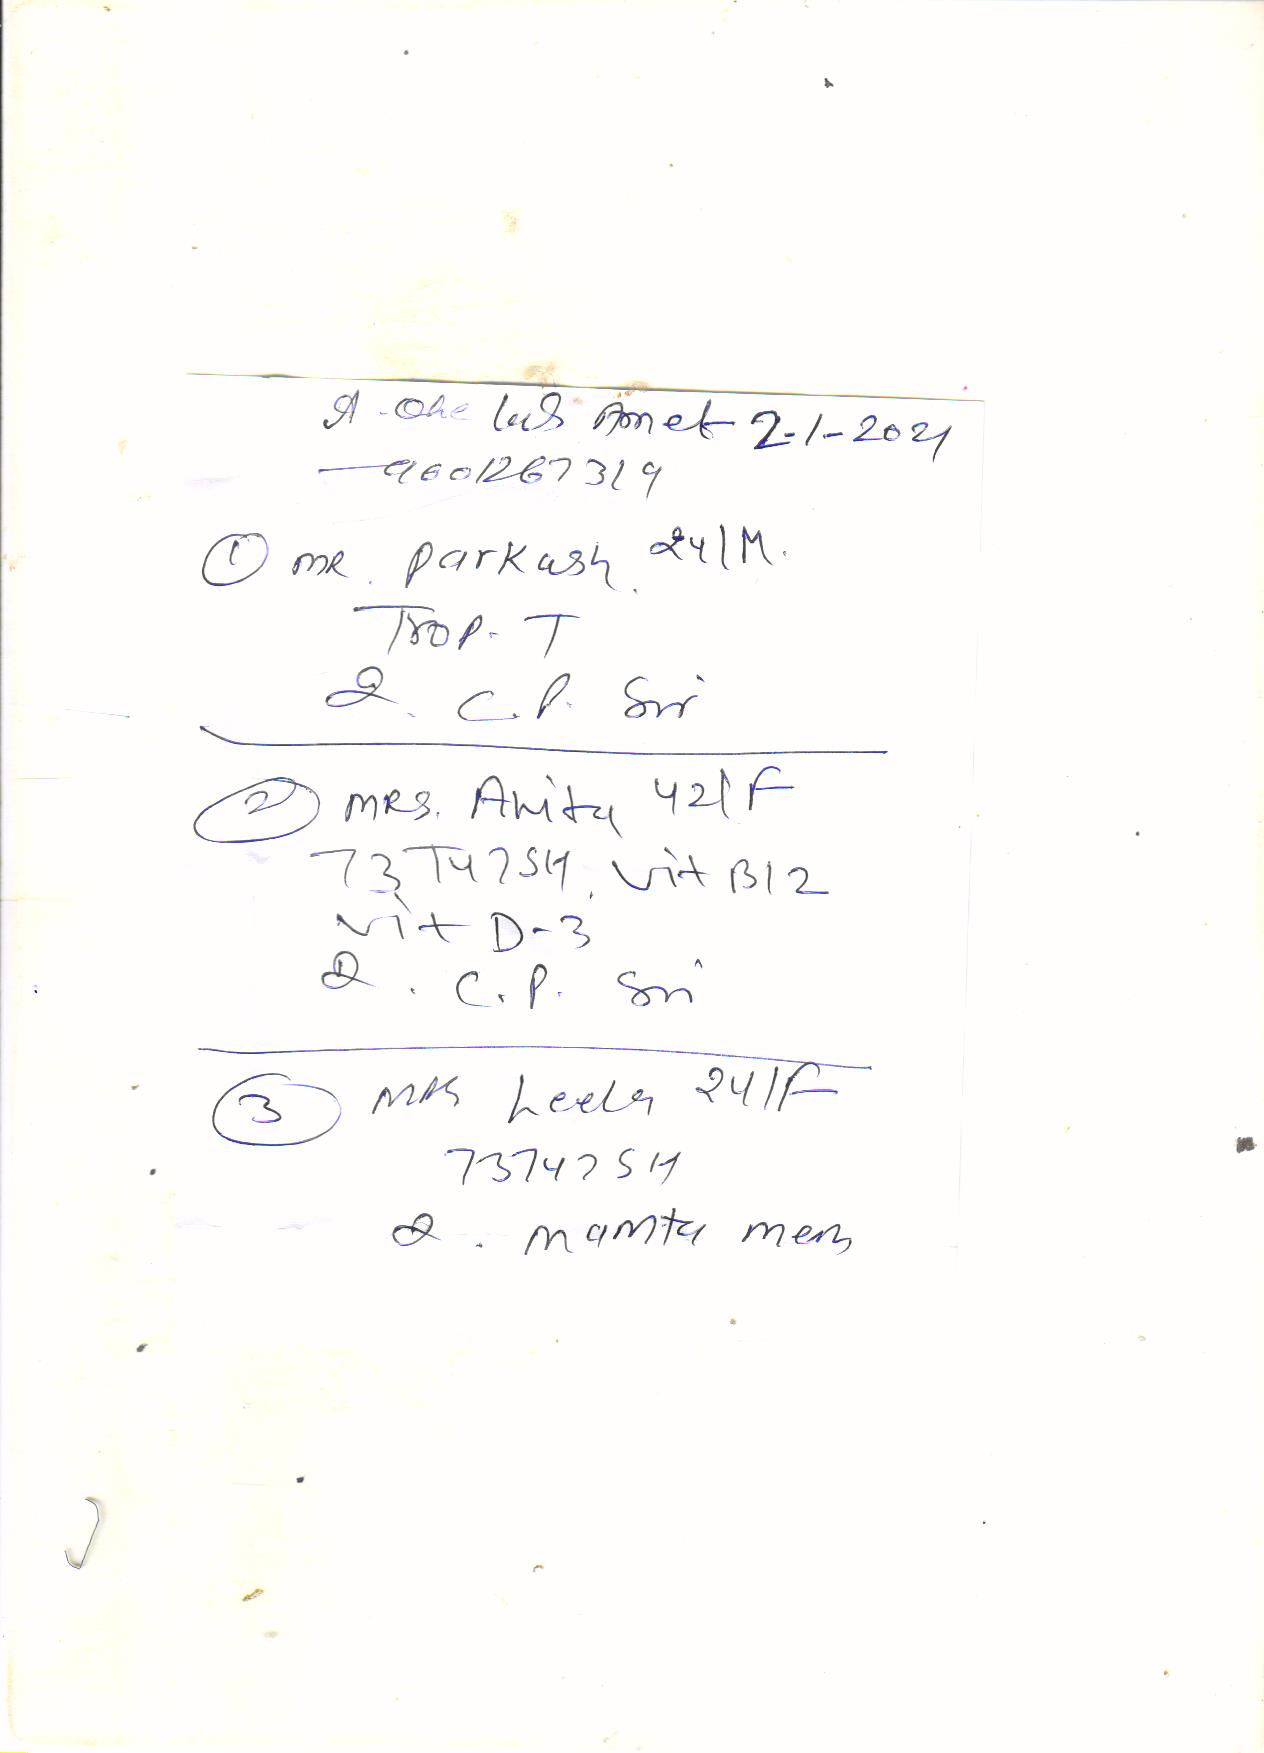 A-One lab Amet 2-1-2021
9601267319
① MR. Parkash 24/M.
Trop-T
C.P. Sir
② MRS. Anita 42/F
T3T4TSH, Vit B12
Vit D-3
C.P. Sir
③ MRS Leela 24/F
T3T4TSH
Mamta mem